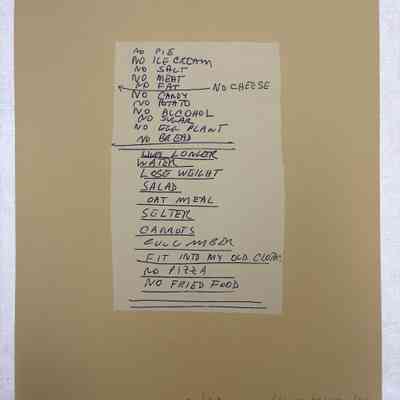 NO PIE
NO ICE CREAM
NO SALT
NO MEAT
NO FAT NO CHEESE
NO CANDY
NO POTATO
NO ALCOHOL
NO SUGAR
NO EGG PLANT
NO BREAD
LIVE LONGER
WATER
LOSE WEIGHT
SALAD
OAT MEAL
SELTER
CARROTS
CUCUMBER
FIT INTO MY OLD CLOTH
NO PIZZA
NO FRIED FOOD